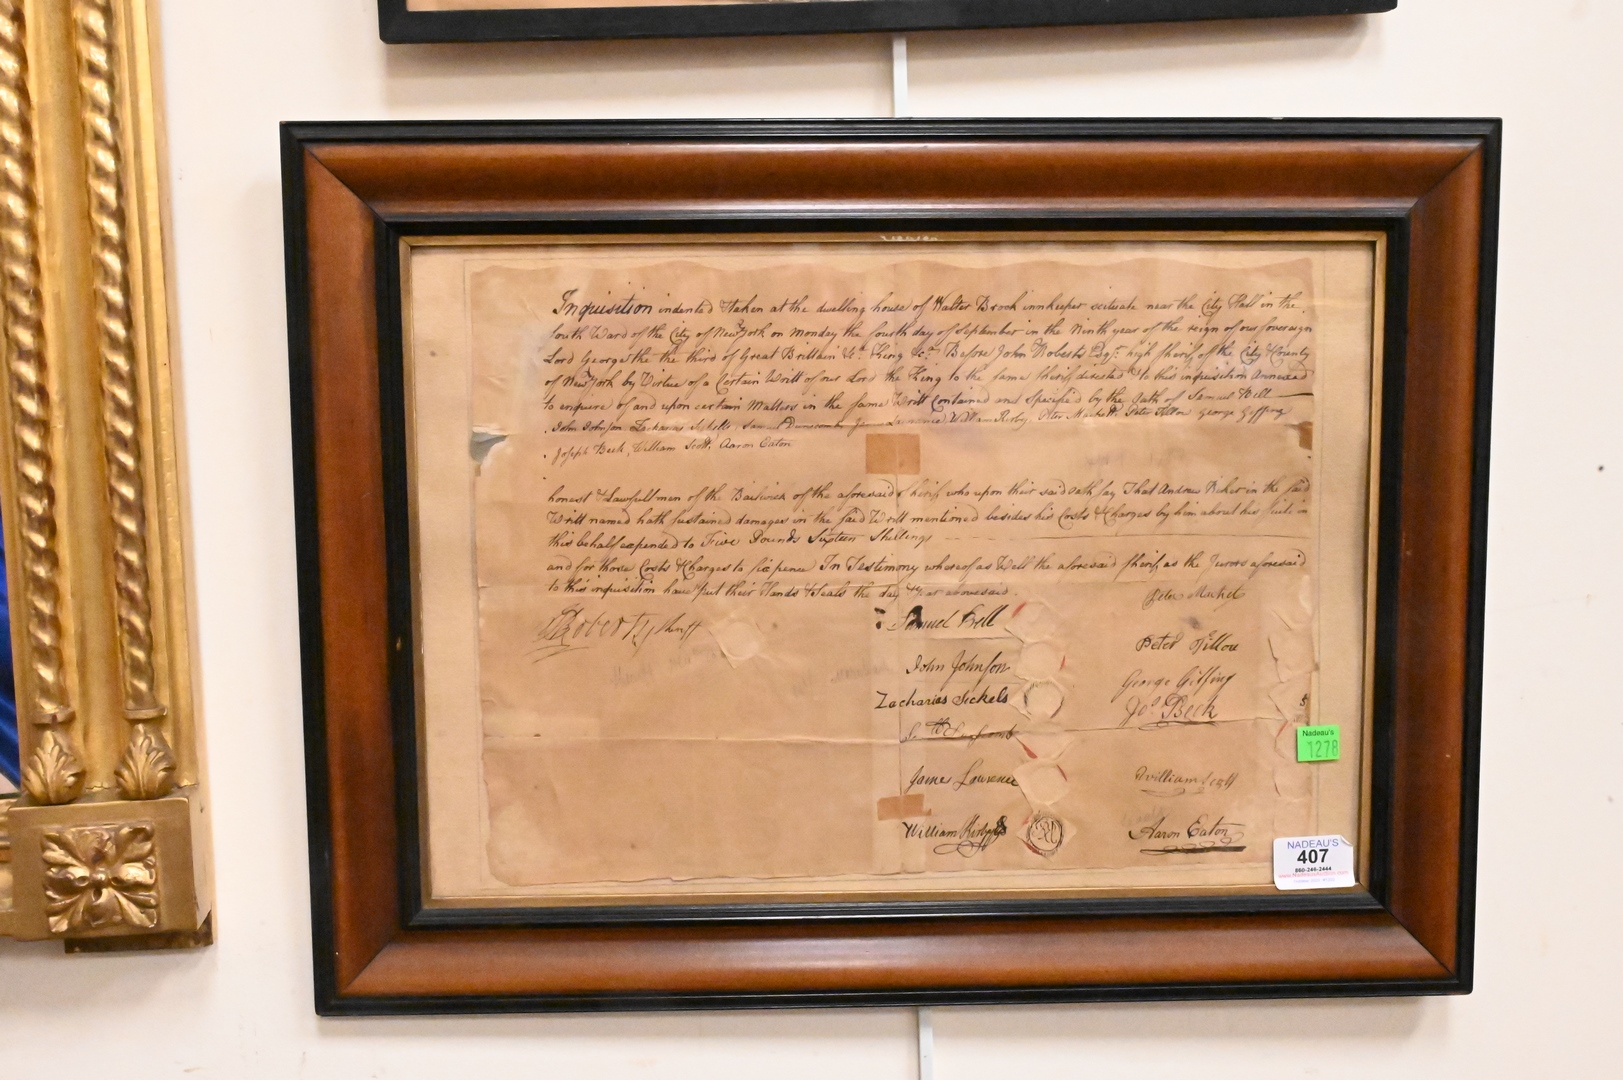 Inquisition indented & taken at the dwelling house of Walter Brock innkeeper scituate near the City Hall in the
fourth Ward of the City of New York on monday the fourth day of September in the Ninth year of the reign of our Sovereign
Lord George the the third of Great Brittain &ca King &c. Before John Roberts Esqr. high Sherif of the City & County
of New York by Virtue of a Certain Writt of our Lord the King to the same Sherif directed & to this inquisition Annexed
to enquire of and upon certain Matters in the same Writt Contained and Specified by the Oath of Samuel Bell
John Johnson Zacharias Sickels, Dunscomb James Lawrence, William Peter Peter Tillou George
Joseph Beck, William Scott, Aaron Eaton
honest & Lawfull men of the Bailiwick of the aforesaid Sherif who upon their said oath say That Andrew Riker in the said
Writt named hath sustained damages in the said Writt mentioned besides his Costs & Charges by him about his suit in
this behalf expended to Five Pounds Sixteen Shillings
and for those Costs & Charges to six pence In Testimony whereof as Well the aforesaid Sherif as the Jurors aforesaid
to this inquisition have put their Hands & Seals the day & year abovesaid.
J Roberts, Sheriff
Samuel Bell
John Johnson
Zacharias Sickels
James Lawrence
William
Peter
Peter Tillou
George
Jos Beck
William Scott
Aaron Eaton
Nadeau's
1278
NADEAU'S
407
860-246-2444